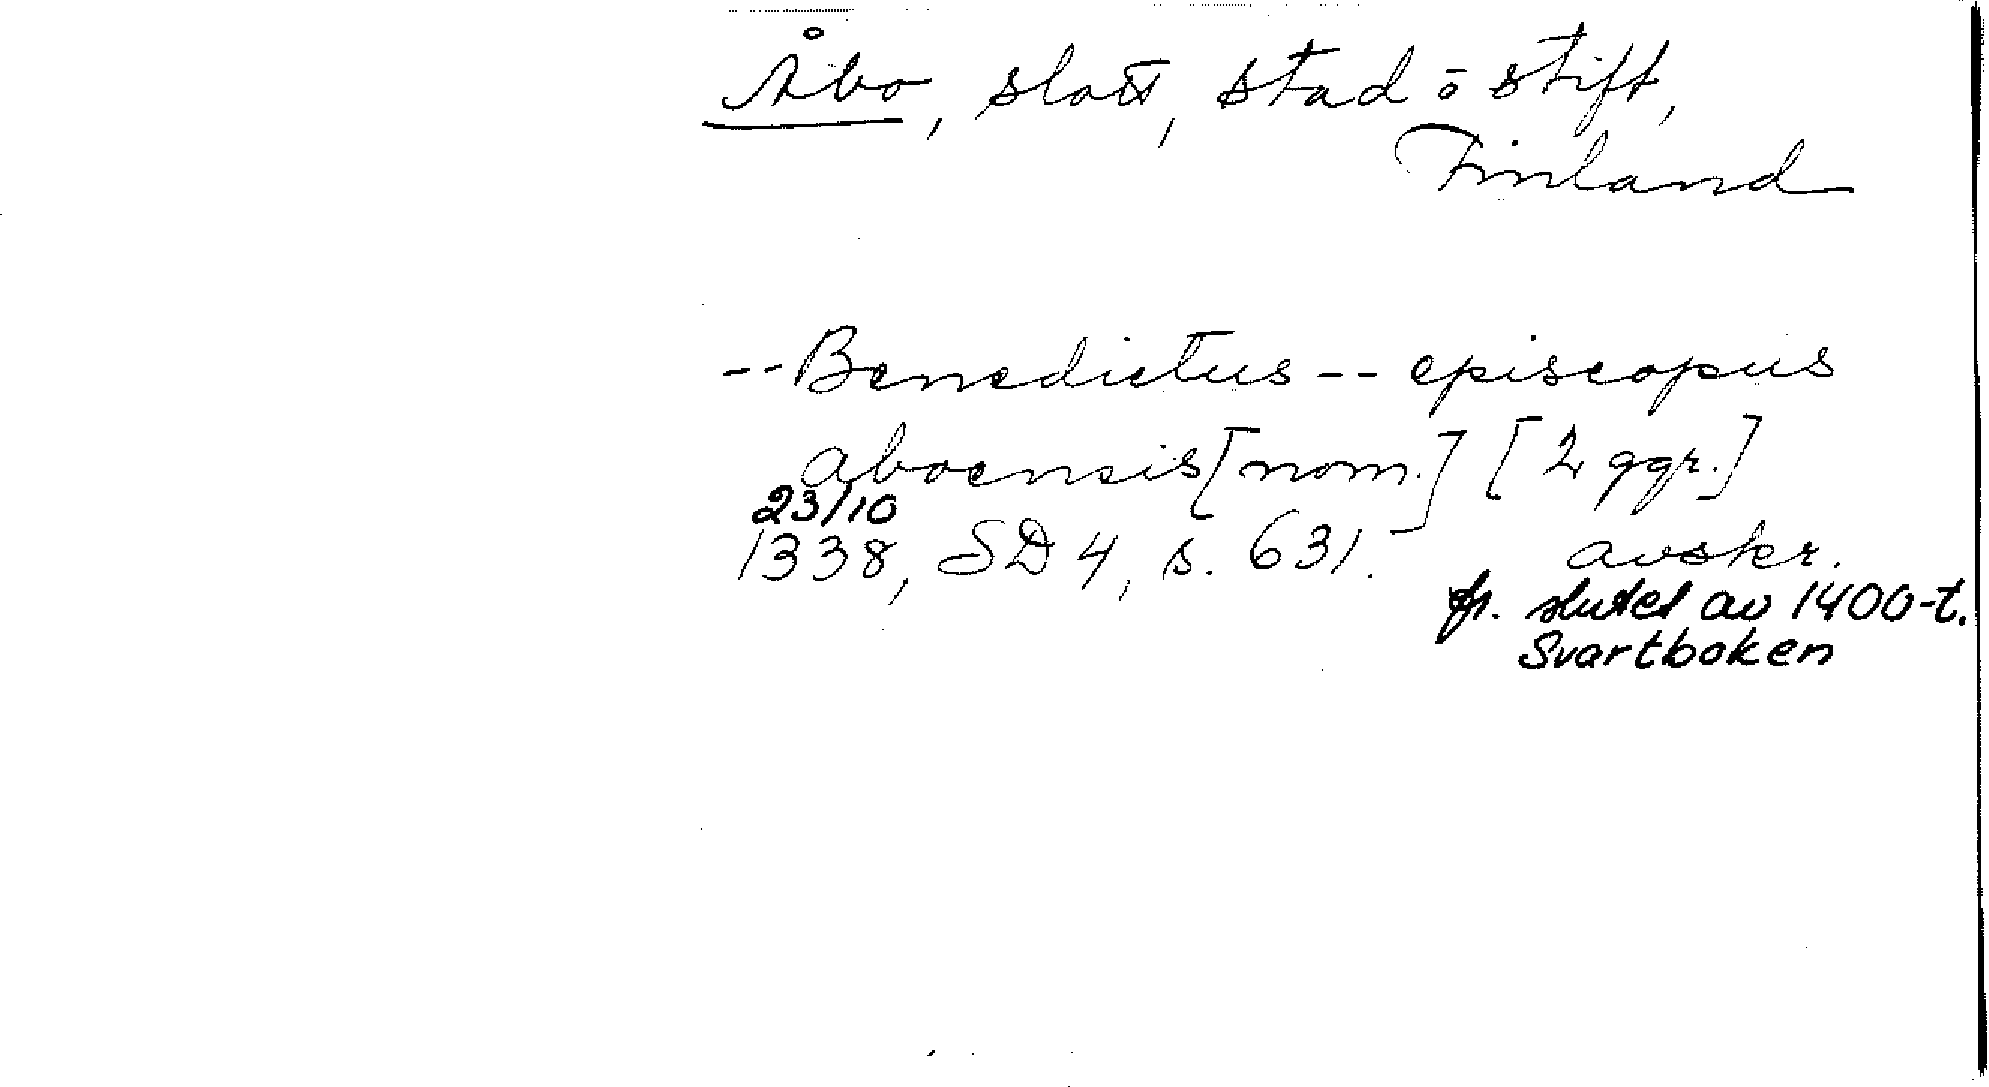 Åbo, slott, stad o stift,
Finland
-- Benedictus -- episcopus
aboensis [nom.] [2 ggr.]
23/10
1338, SD 4, s. 631. avskr.
fr. slutet av 1400-t.
Svartboken